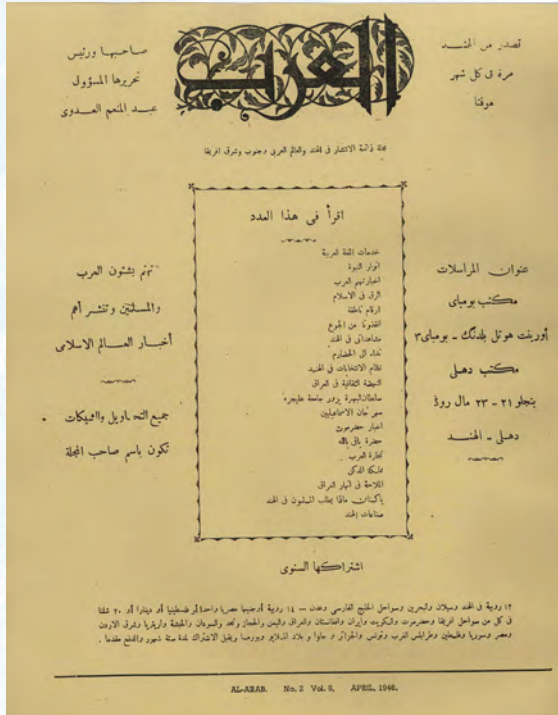 تصدر من الهند
مرة في كل شهر
موقتا
العرب
صاحبها ورئيس
تحريرها المسؤول
عبد المنعم العدوى
مجلة ذائعة الانتشار في الهند والعالم العربي وجنوب وشرق افريقا
اقرأ في هذا العدد
خدمات اللغة العربية
أنوار النبوة
أخبار تهم العرب
الرق في الاسلام
أرقام ناطقة
أنقذونا من الجوع
مشاهداتى في الهند
نداء الى الحضارم
نظام الانتخابات في الهند
النهضة الثقافية في العراق
سلطان البهرة يزور جامعة عليجره
مهرجان الاسماعيليين
أخبار حضرموت
حضرة باقى بالله
تجارة العرب
مملكة الدكن
الملاحة في أنهار العراق
پاكستان ماذا يطلب المسلمون في الهند
صناعات الهند
عنوان المراسلات
مكتب بومباى
أورينت هوتل بلدنگ - بومباى ٣
مكتب دهلى
بنجلو ٢١ - ٢٣ مال روڈ
دهلى - الهند
تهتم بشئون العرب
والمسلمين وتنشر أهم
أخبار العالم الاسلامى
جميع التحاويل والشيكات
تكون باسم صاحب المجلة
اشتراكها السنوى
١٢ روبية في الهند وسيلان والبحرين وسواحل الخليج الفارسي وعدن — ١٤ روبية أوجنيها مصريا واحدا أو فلسطينيا أو دينارا أو ٢٠ شلنا
في كل من سواحل افريقا وحضرموت والكويت وايران وافغانستان والعراق واليمن والحجاز ونجد والسودان والحبشة واريتريا وشرق الاردن
ومصر وسوريا وفلسطين وطرابلس الغرب وتونس والجزائر و جاوا و بلاد الملايو وبورما ويقبل الاشتراك لمدة ستة شهور والدفع مقدما .
AL-ARAB. No. 2 Vol. 9, APRIL, 1946.